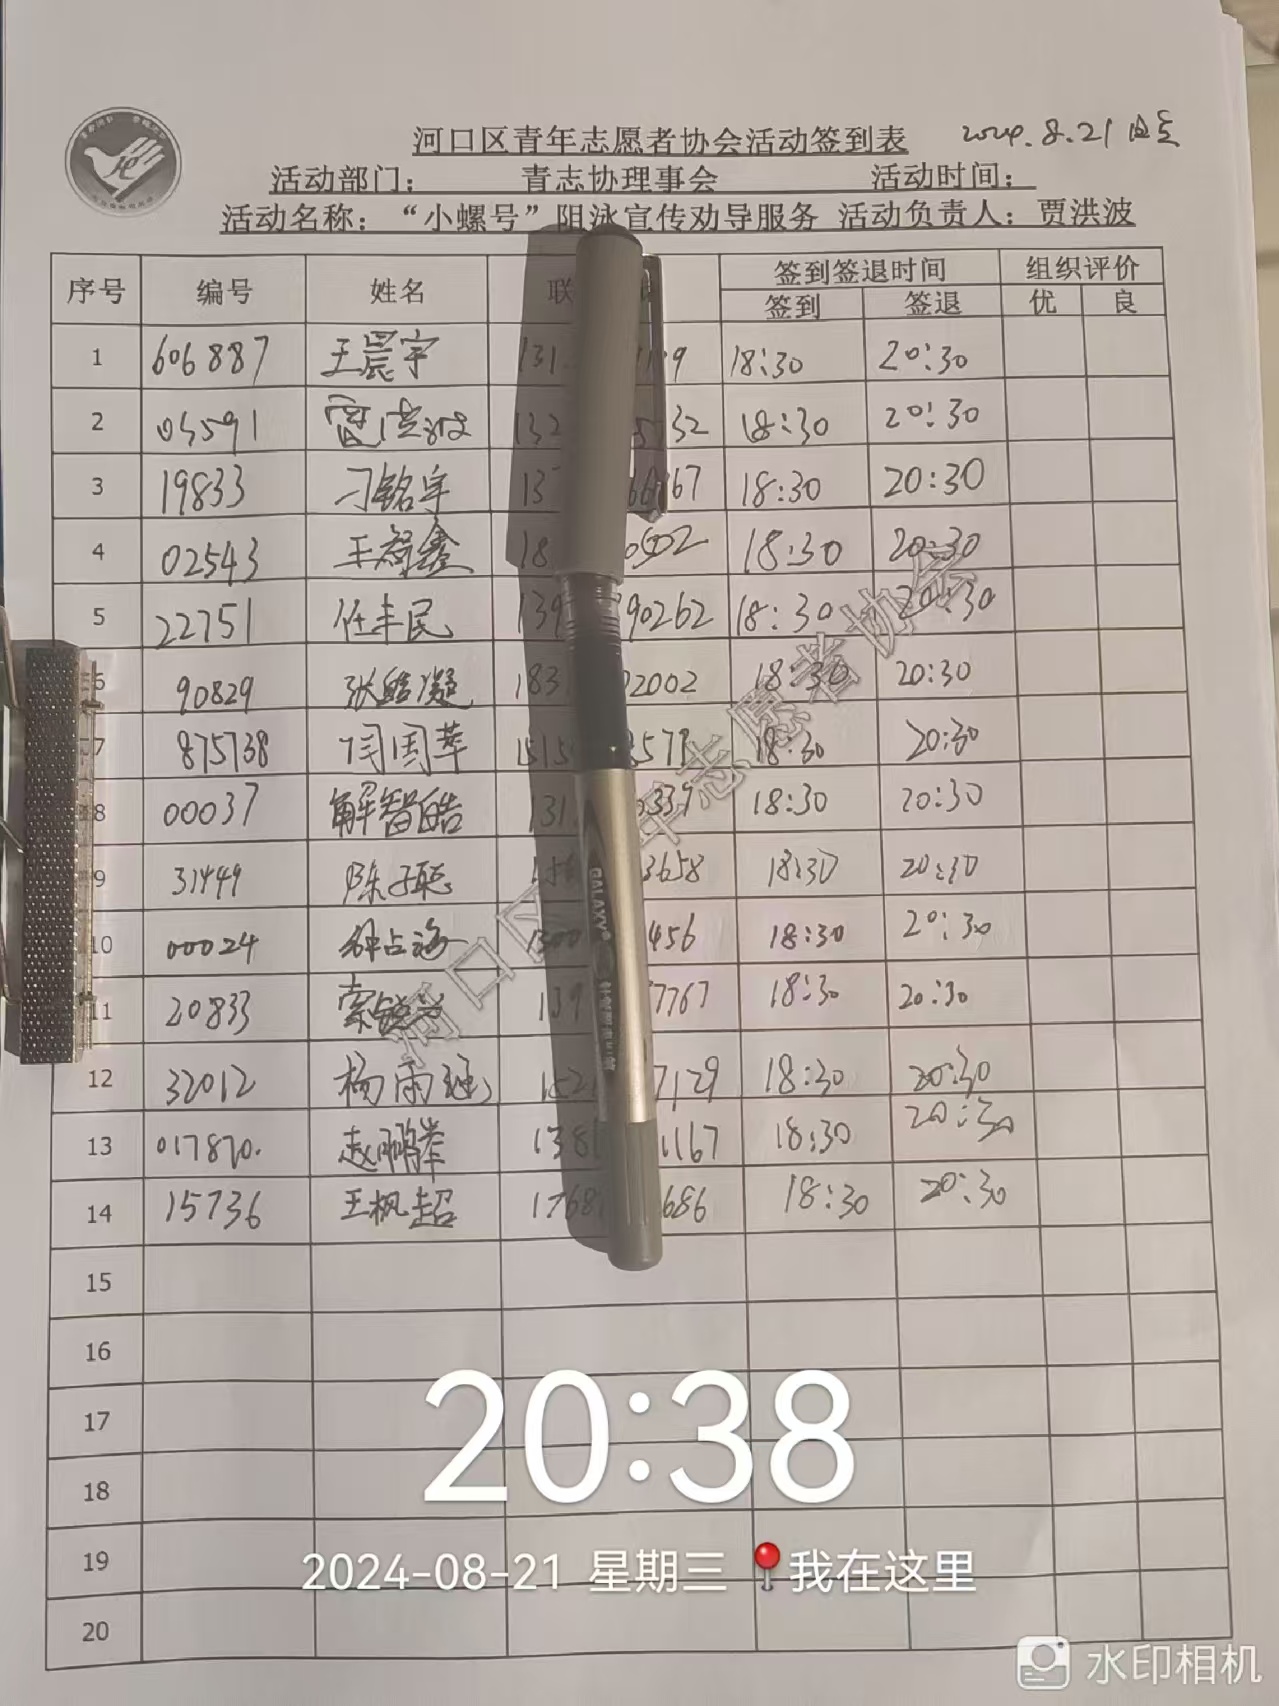 河口区青年志愿者协会活动签到表 2024.8.21
活动部门： 青志协理事会 活动时间：
活动名称：“小螺号”阻泳宣传劝导服务 活动负责人：贾洪波
序号 编号 姓名 联 签到签退时间 组织评价
签到 签退 优 良
1 606887 王晨宇 131 18:30 20:30
2 03591 132 5732 18:30 20:30
3 19833 刁铭宇 13 18:30 20:30
4 02543 王 鑫 18 0502 18:30 20:30
5 22751 任丰民 139 90262 18:30 20:30
6 90829 张皓凝 183 02002 18:30 20:30
7 875738 闫国苹 1515 18:30 20:30
8 00037 解智皓 131 0339 18:30 20:30
9 31449 陈子聪 3658 18:30 20:30
10 00024 钟占海 1300 456 18:30 20:30
11 20833 索 139 7767 18:30 20:30
12 32012 杨雨 152 7129 18:30 20:30
13 017870. 赵鹏 138 1167 18:30 20:30
14 15736 王枫超 1768 686 18:30 20:30
15
16
17
18
19
20
河口区 年志愿者协会
GALAXY
20:38
2024-08-21 星期三 我在这里
水印相机